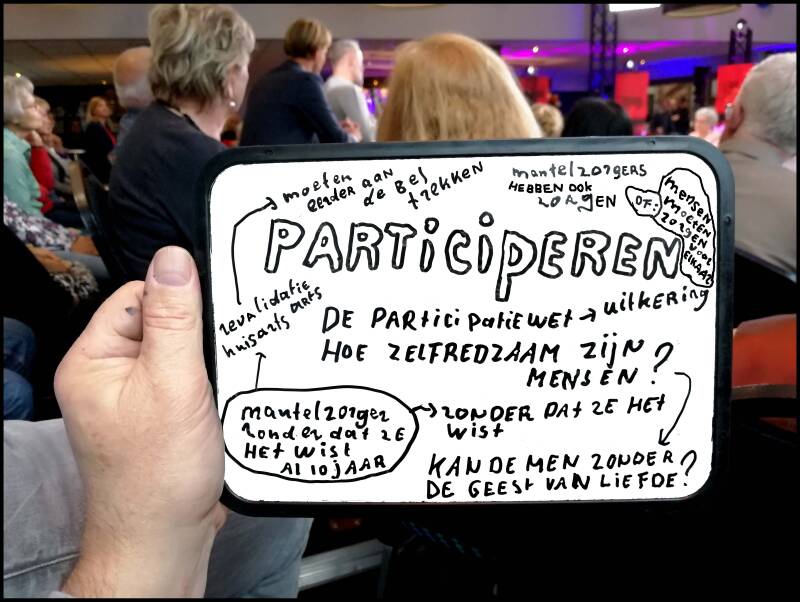 moeten
eerder aan
de Bel
trekken
mantelzorgers
HEBBEN OOK
ZORGEN
OF:
mensen
moeten
zorgen voor
ELKAAR
PARTiCiPEREN
revalidatie arts
huisarts
DE PARticiPatiEWEt → uitkering
HOE ZELFREDZAAM ZIJN
MENSEN?
mantelzorger
zonder dat ZE
HEt Wist
Al 10 jAAR
ZONDER DAT ZE HET
Wist
KAN DE MEN ZONDER
DE GEESt VAN LiEFDE?